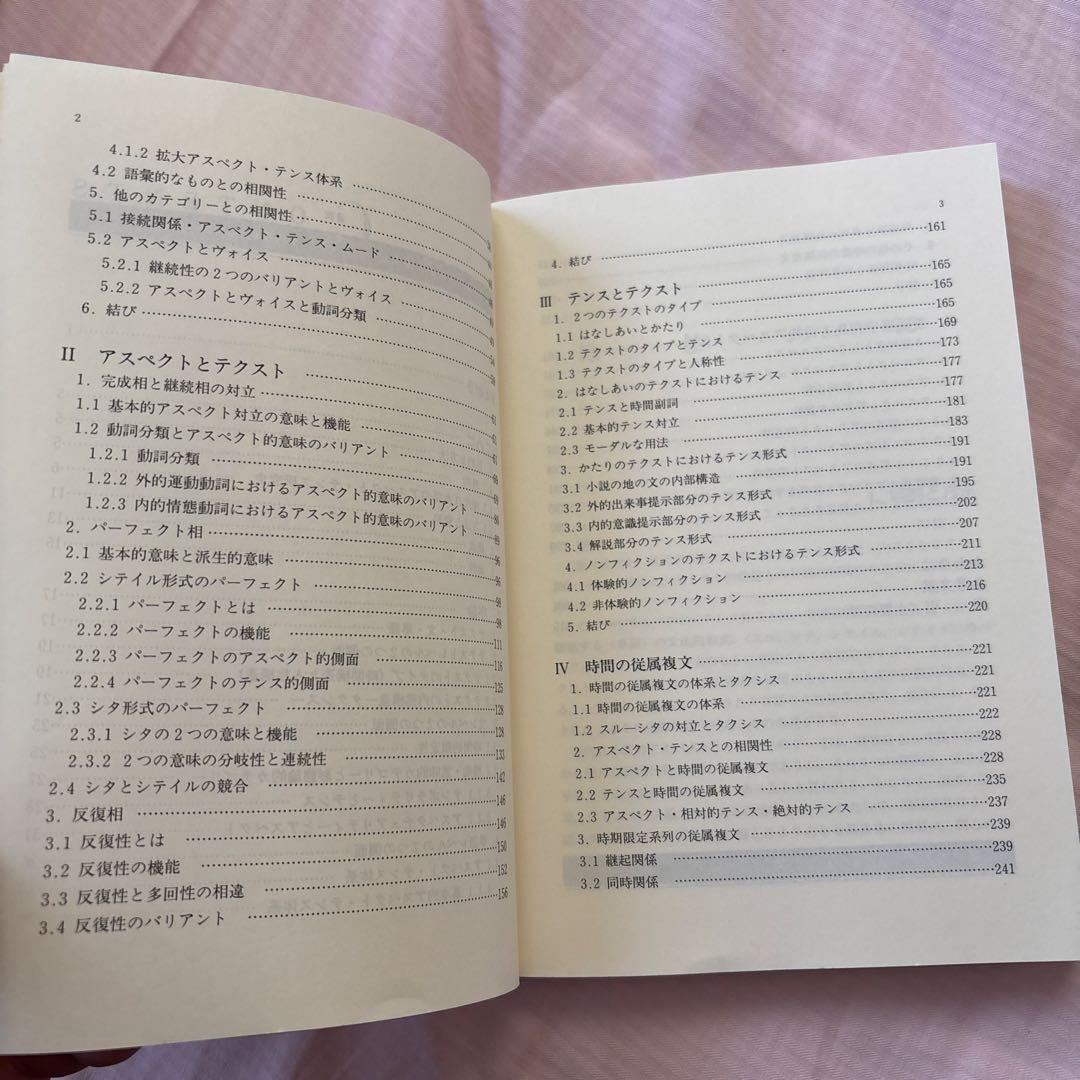 2
4.1.2 拡大アスペクト・テンス体系
4.2 語彙的なものとの相関性
5. 他のカテゴリーとの相関性
5.1 接続関係・アスペクト・テンス・ムード
5.2 アスペクトとヴォイス
5.2.1 継続性の2つのバリアントとヴォイス
5.2.2 アスペクトとヴォイスと動詞分類
6. 結び
II アスペクトとテクスト
1. 完成相と継続相の対立 61
1.1 基本的アスペクト対立の意味と機能 61
1.2 動詞分類とアスペクト的意味のバリアント 61
1.2.1 動詞分類
1.2.2 外的運動動詞におけるアスペクト的意味のバリアント
1.2.3 内的情態動詞におけるアスペクト的意味のバリアント
2. パーフェクト相
2.1 基本的意味と派生的意味 96
2.2 シテイル形式のパーフェクト 96
2.2.1 パーフェクトとは 98
2.2.2 パーフェクトの機能 98
2.2.3 パーフェクトのアスペクト的側面 111
2.2.4 パーフェクトのテンス的側面 116
2.3 シタ形式のパーフェクト 125
2.3.1 シタの2つの意味と機能 128
2.3.2 2つの意味の分岐性と連続性 128
2.4 シタとシテイルの競合 133
3. 反復相 142
3.1 反復性とは 146
3.2 反復性の機能 146
3.3 反復性と多回性の相違 150
3.4 反復性のバリアント 152
156
3
4. 結び 161
III テンスとテクスト 165
1. 2つのテクストのタイプ 165
1.1 はなしあいとかたり 165
1.2 テクストのタイプとテンス 169
1.3 テクストのタイプと人称性 173
2. はなしあいのテクストにおけるテンス 177
2.1 テンスと時間副詞 177
2.2 基本的テンス対立 181
2.3 モーダルな用法 183
3. かたりのテクストにおけるテンス形式 191
3.1 小説の地の文の内部構造 191
3.2 外的出来事提示部分のテンス形式 195
3.3 内的意識提示部分のテンス形式 202
3.4 解説部分のテンス形式 207
4. ノンフィクションのテクストにおけるテンス形式 211
4.1 体験的ノンフィクション 213
4.2 非体験的ノンフィクション 216
5. 結び 220
IV 時間の従属複文 221
1. 時間の従属複文の体系とタクシス 221
1.1 時間の従属複文の体系 221
1.2 スル—シタの対立とタクシス 222
2. アスペクト・テンスとの相関性 228
2.1 アスペクトと時間の従属複文 228
2.2 テンスと時間の従属複文 235
2.3 アスペクト・相対的テンス・絶対的テンス 237
3. 時期限定系列の従属複文 239
3.1 継起関係 239
3.2 同時関係 241